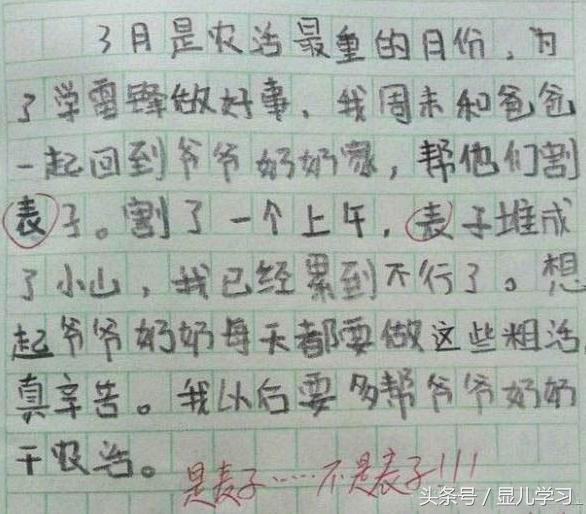 3月是农活最重的月份，为
了学雷锋做好事，我周末和爸爸
一起回到爷爷奶奶家，帮他们割
表子。割了一个上午，表子堆成
了小山，我已经累到不行了。想
起爷爷奶奶每天都要做这些粗活
真辛苦。我以后要多帮爷爷奶奶
干农活。
是麦子……不是表子!!!
头条号 / 显儿学习